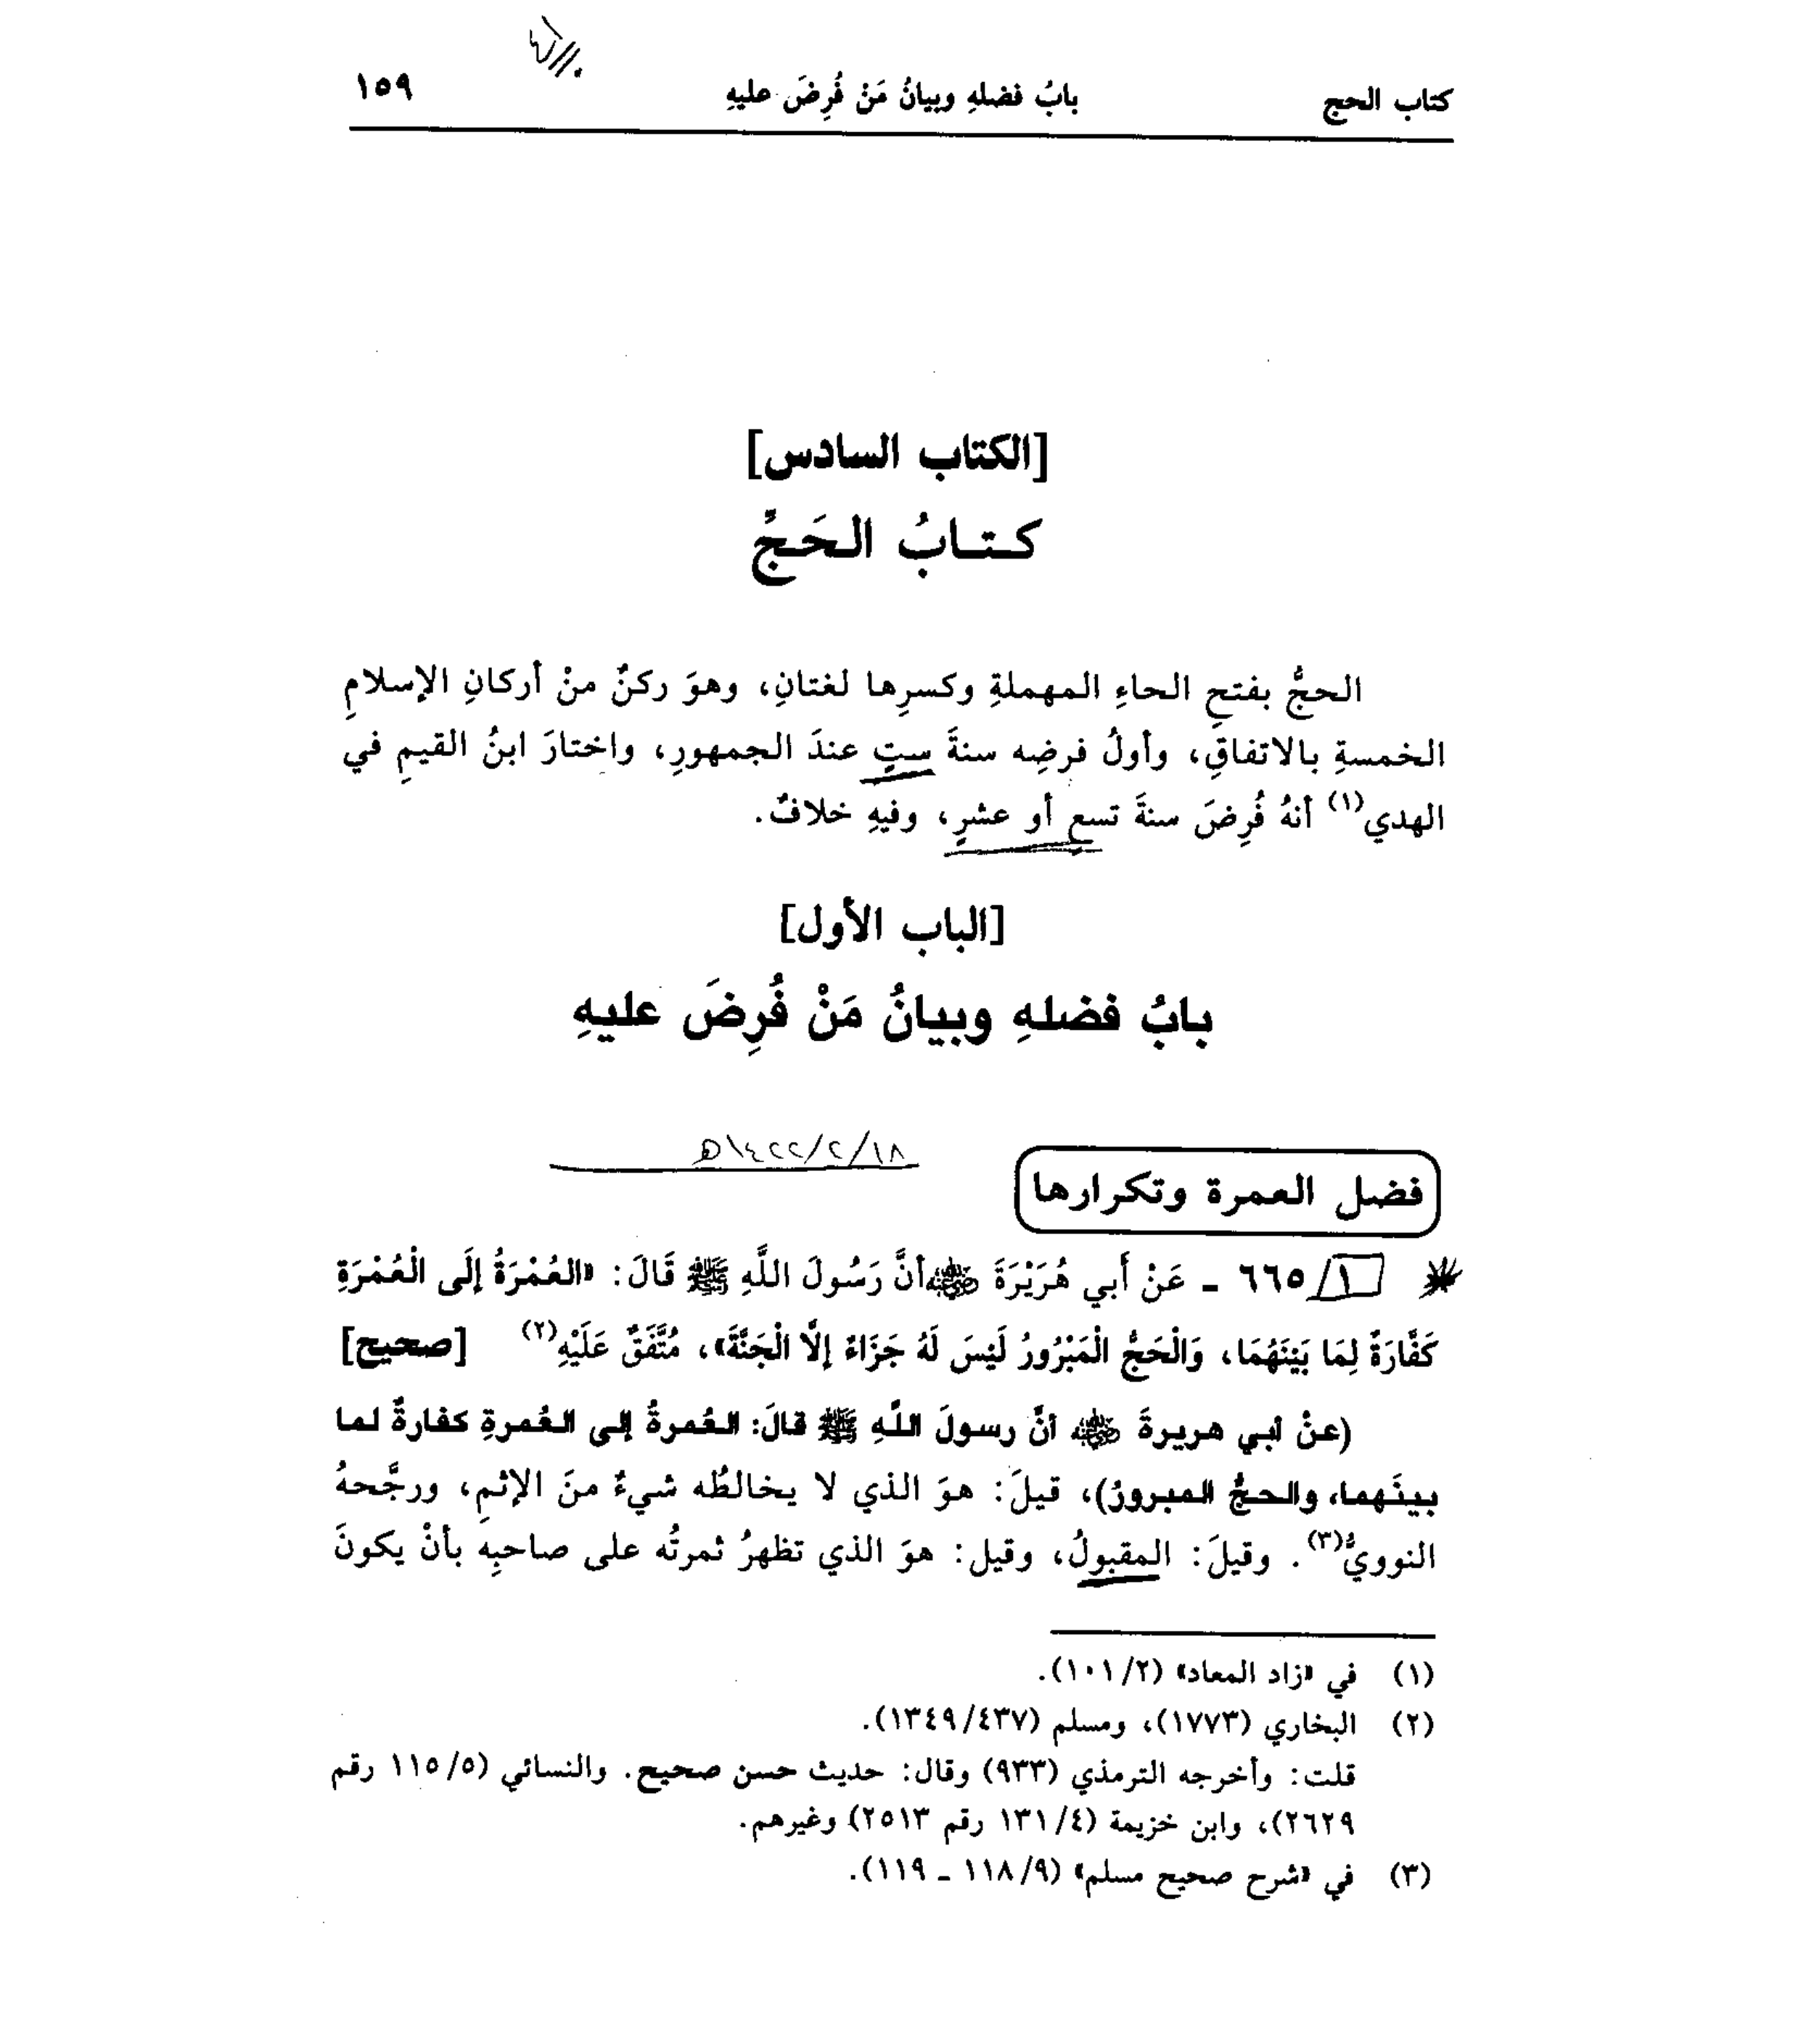 كتاب الحج بابُ فضلهِ وبيانُ مَنْ فُرِضَ عليهِ ١٥٩
[الكتاب السادس]
كتابُ الحَجِّ
الحجُّ بفتحِ الحاءِ المهملةِ وكسرِها لغتانِ، وهوَ ركنٌ منْ أركانِ الإسلامِ
الخمسةِ بالاتفاقِ، وأولُ فرضِه سنةَ ستٍ عندَ الجمهورِ، واختارَ ابنُ القيمِ في
الهدي(١) أنهُ فُرِضَ سنةَ تسعٍ أو عشرٍ، وفيهِ خلافٌ.
[الباب الأول]
بابُ فضلهِ وبيانُ مَنْ فُرِضَ عليهِ
١٨/٢/١٤٢٢ه
فضل العمرة وتكرارها
١/٦٦٥ - عَنْ أَبي هُرَيْرَةَ رضي الله عنه أنَّ رَسُولَ اللَّهِ ﷺ قَالَ: «العُمْرَةُ إلَى الْعُمْرَةِ
كَفَّارَةٌ لِمَا بَيْنَهُمَا، وَالْحَجُّ الْمَبْرُورُ لَيْسَ لَهُ جَزَاءٌ إلَّا الْجَنَّةَ»، مُتَّفَقٌ عَلَيْهِ(٢) [صحيح]
(عنْ أبي هريرةَ رضي الله عنه أنَّ رسولَ اللَّهِ ﷺ قالَ: العُمرةُ إلى العُمرةِ كفارةٌ لما
بينَهما، والحجُّ المبرورُ)، قيلَ: هوَ الذي لا يخالطُه شيءٌ منَ الإثمِ، ورجَّحهُ
النوويُّ(٣). وقيلَ: المقبولُ، وقيل: هوَ الذي تظهرُ ثمرتُه على صاحبِهِ بأنْ يكونَ
(١) في «زاد المعاد» (٢/١٠١).
(٢) البخاري (١٧٧٣)، ومسلم (٤٣٧/١٣٤٩).
قلت: وأخرجه الترمذي (٩٣٣) وقال: حديث حسن صحيح. والنسائي (٥/١١٥ رقم
٢٦٢٩)، وابن خزيمة (٤/١٣١ رقم ٢٥١٣) وغيرهم.
(٣) في «شرح صحيح مسلم» (٩/١١٨ - ١١٩).